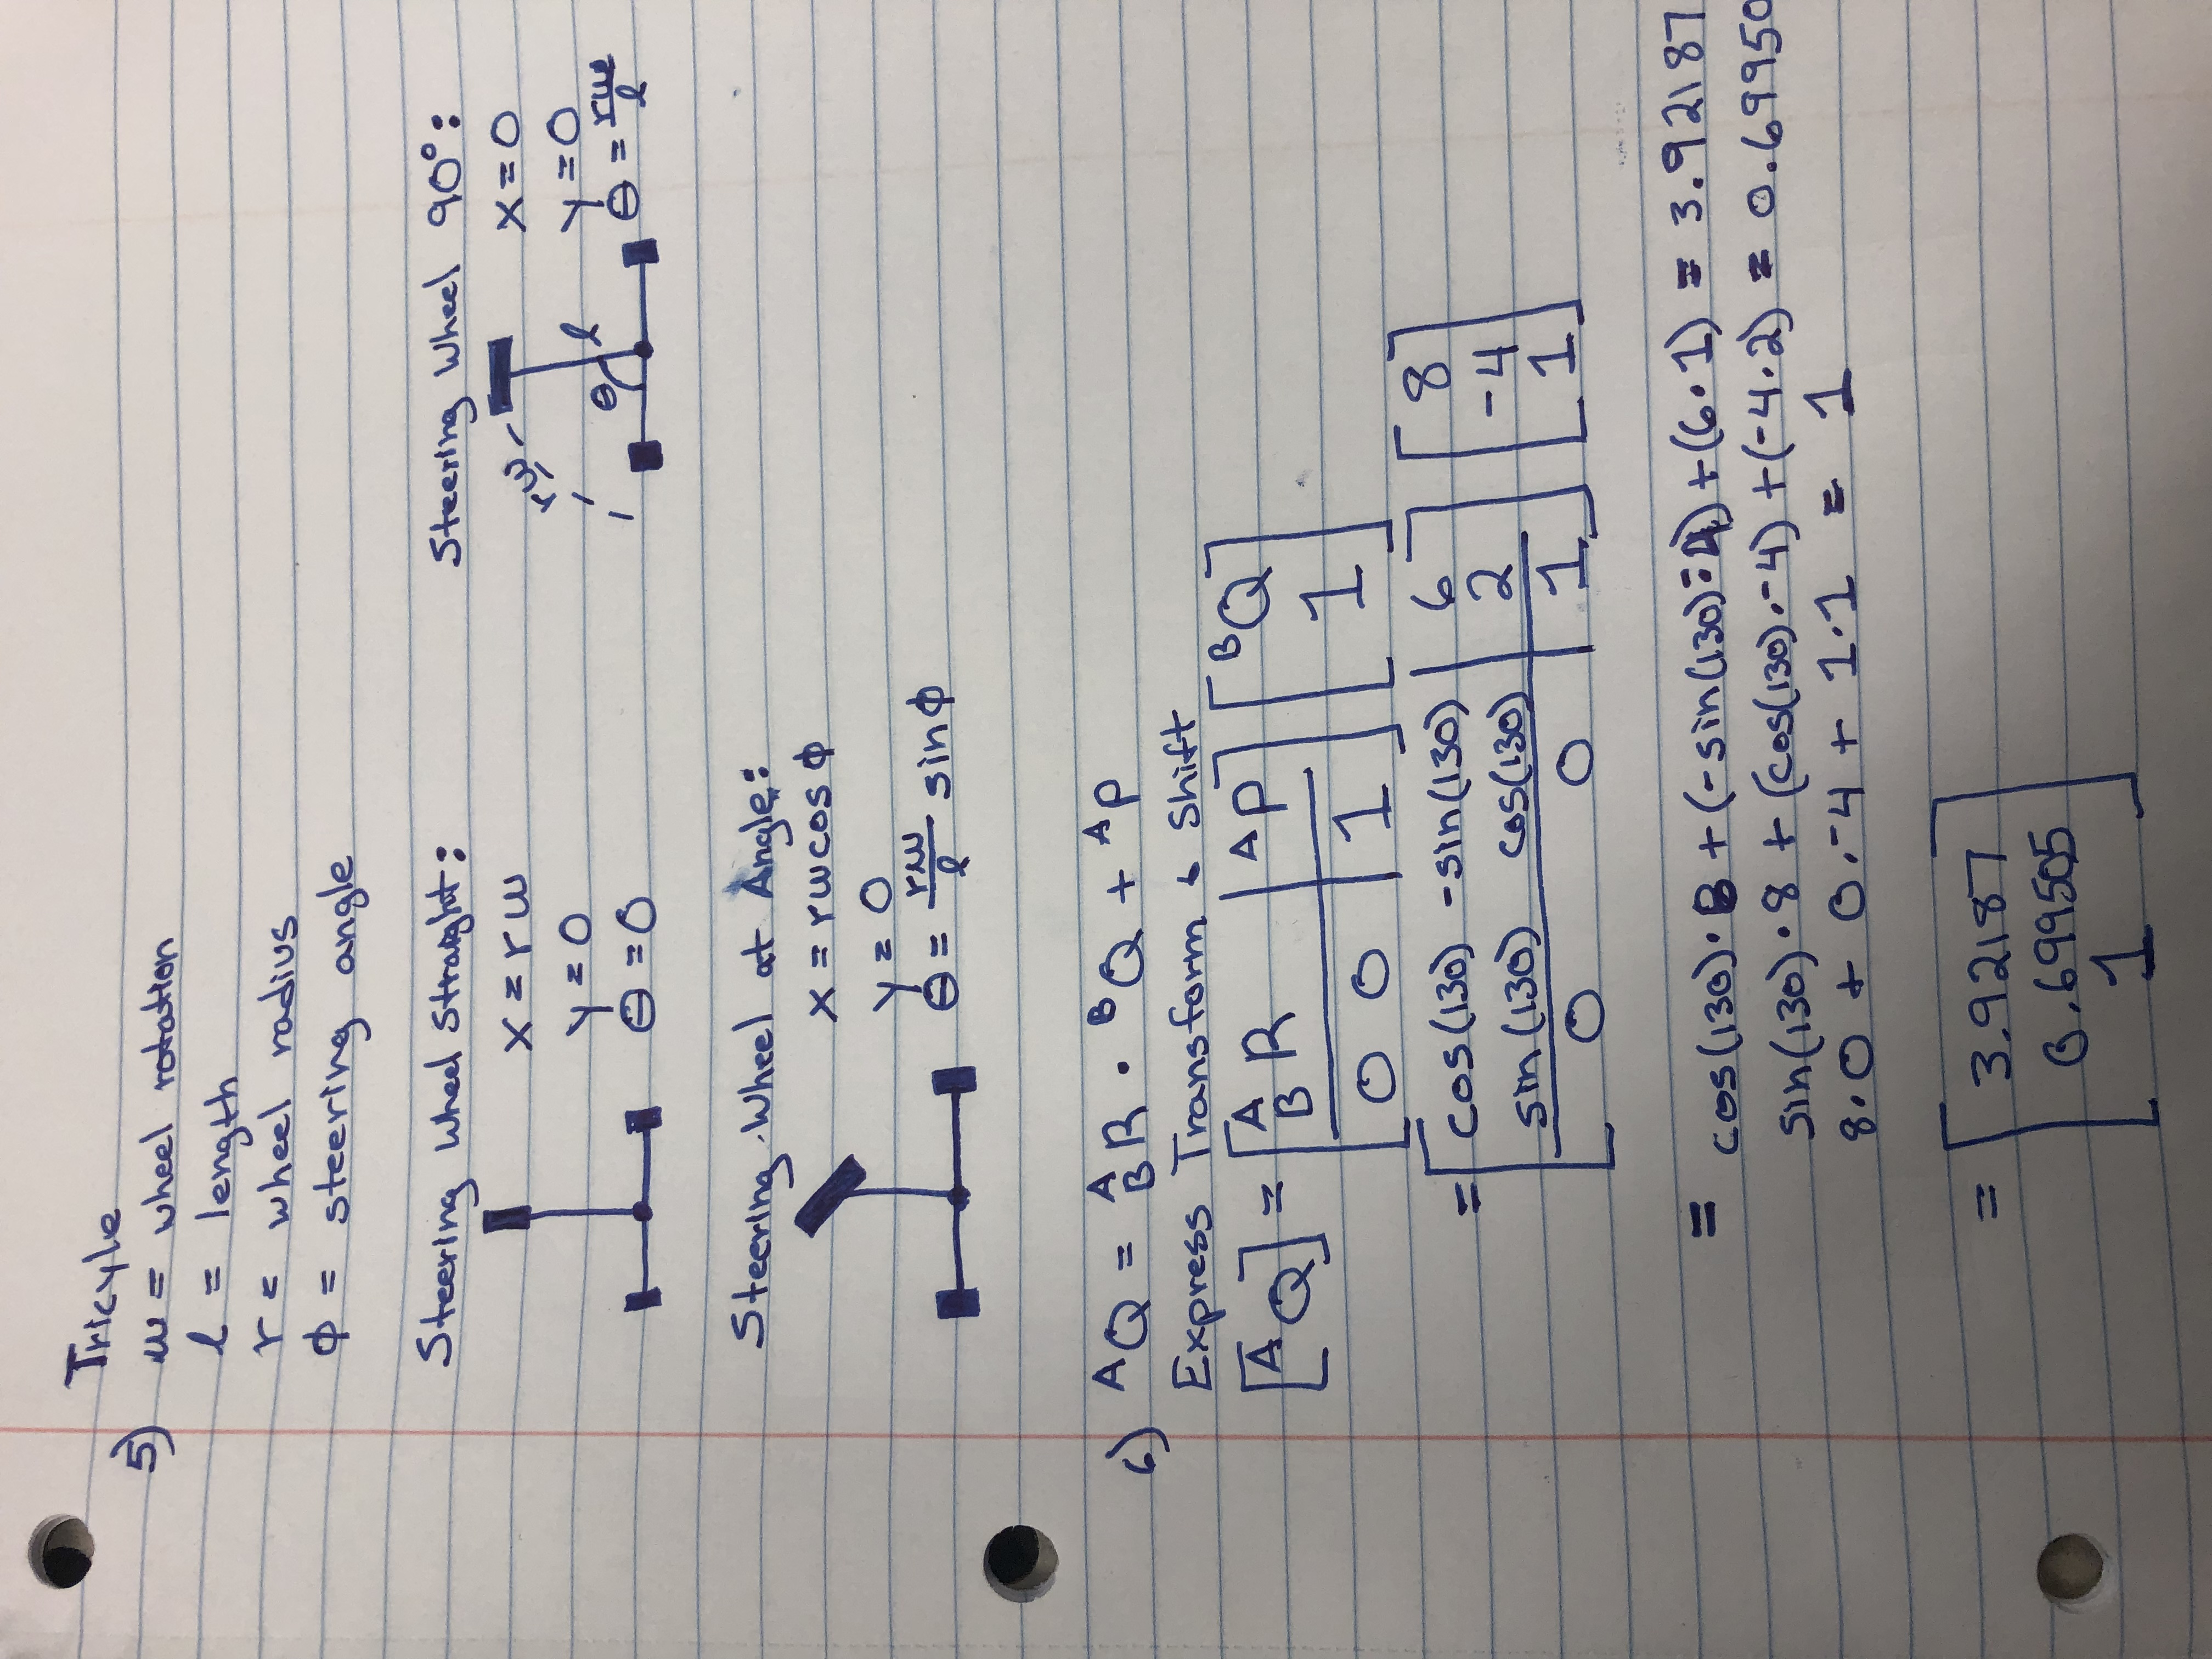 Tricyle
5)
w = wheel rotation
l = length
r = wheel radius
ϕ = steering angle
Steering Wheel Straight:
x = rw
y = 0
θ = 0
Steering Wheel 90°:
rw
θ
l
x = 0
y = 0
θ = rw/l
Steering Wheel at Angle:
x = rwcos ϕ
y = 0
θ = rw/l sinϕ
6) ᴬQ = ᴬ_B R · ᴮQ + ᴬP
Express Transform & Shift
[ᴬQ] = [ᴬ_B R | ᴬP] [ᴮQ]
[0 0 | 1] [1]
= [cos(130) -sin(130) | 6] [8]
[sin(130) cos(130) | 2] [-4]
[0 0 | 1] [1]
= cos(130)·8 + (-sin(130)·-4) + (6·1) = 3.92187
sin(130)·8 + (cos(130)·-4) + (-4·2) = 0.69950
8·0 + 0·-4 + 1·1 = 1
= [3.92187]
[0.699505]
[1]